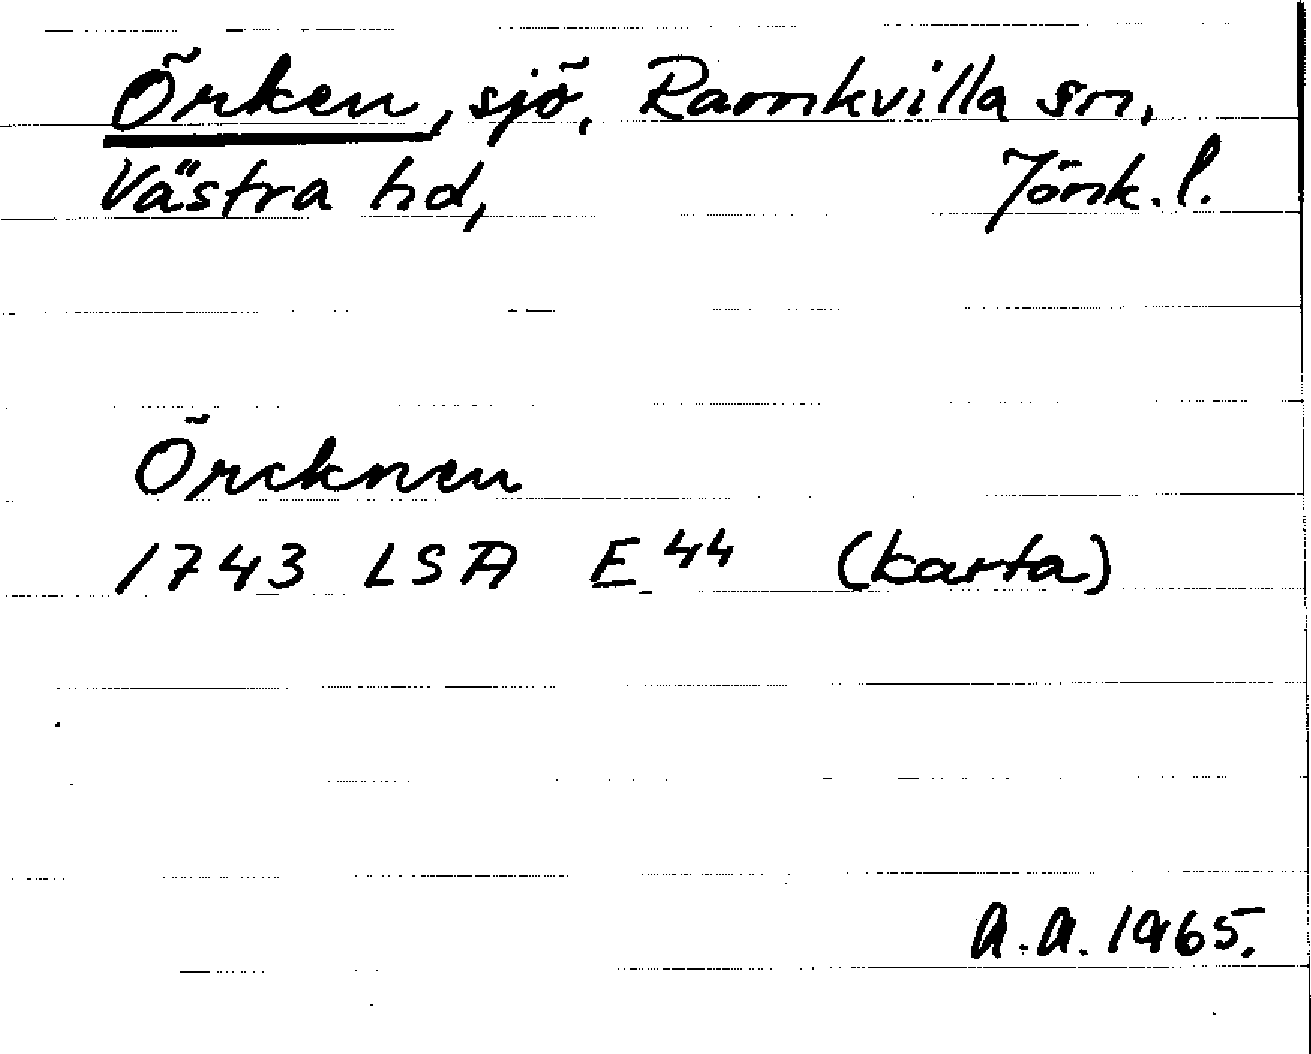 Örken, sjö, Ramkvilla sn,
Västra hd, Jönk. l.
Örcknen
1743 LSA E 44 (karta)
A.A. 1965.